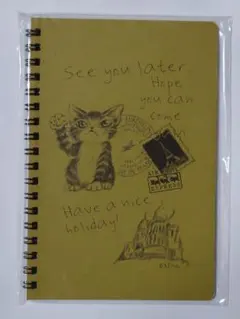 See you later
Hope
you can
come
Have a nice
holiday!